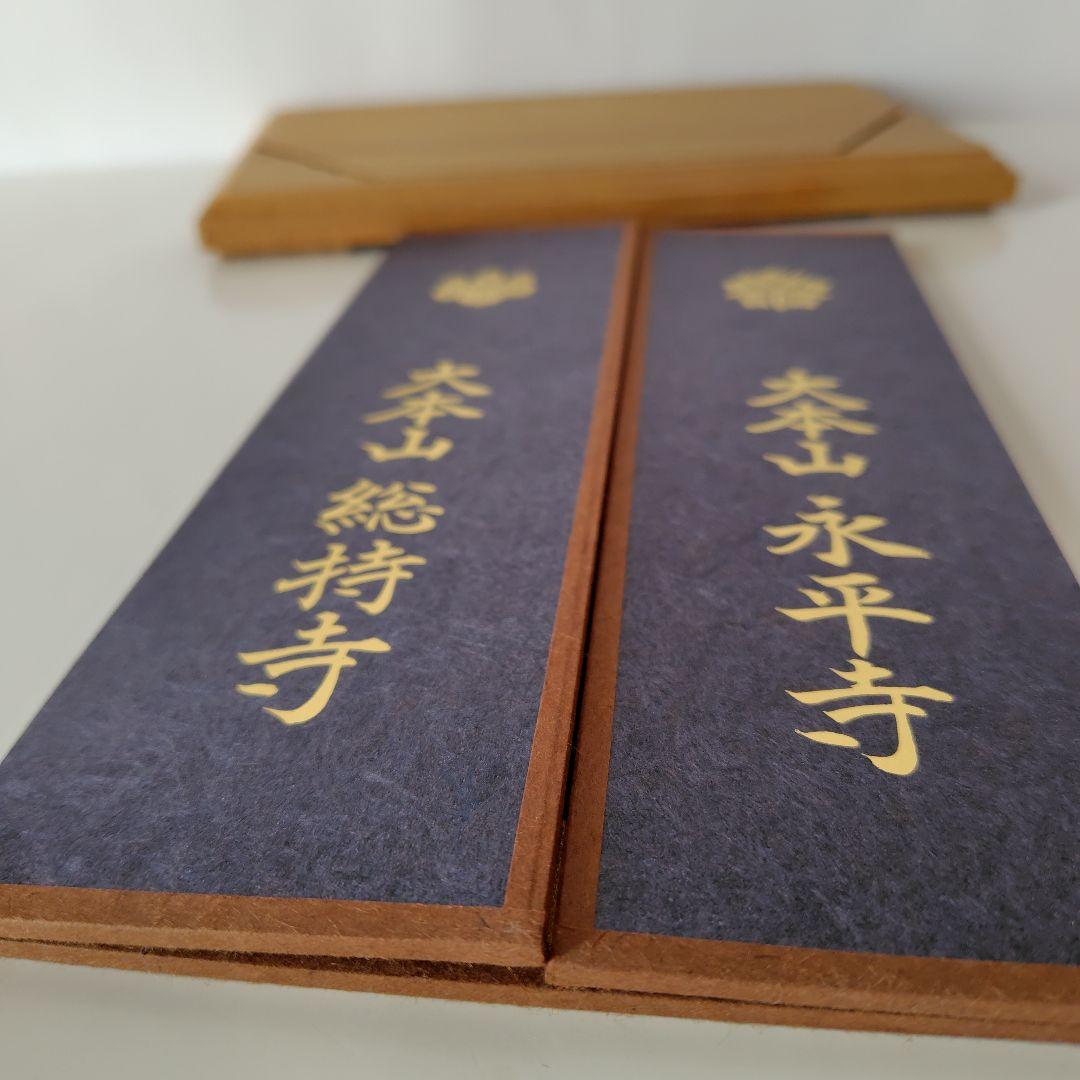 大本山 永平寺
大本山 総持寺